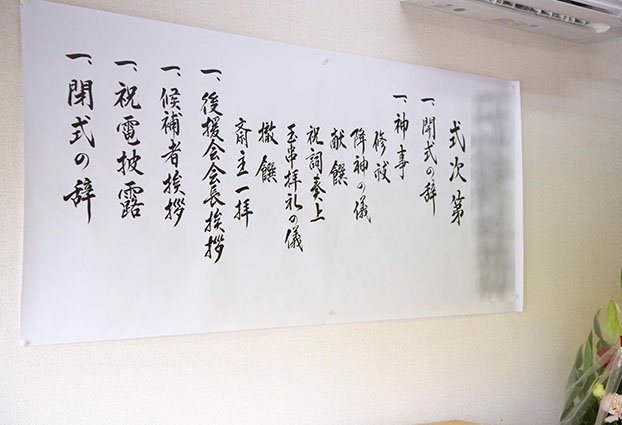 式次第
一、開式の辞
一、神事
修祓
降神の儀
献饌
祝詞奏上
玉串拝礼の儀
撤饌
斎主一拝
一、後援会会長挨拶
一、候補者挨拶
一、祝電披露
一、閉式の辞